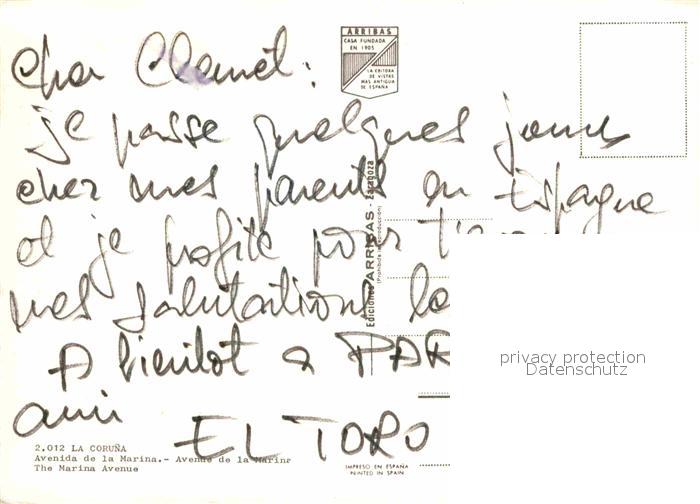 ARRIBAS
CASA FUNDADA
EN 1905
LA EDITORA
DE VISTAS
MAS ANTIGUA
DE ESPAÑA
Cher
je passe quelques jours
chez mes parents en Espagne
et je profite pour
mes salutations
A bientot a PAR
ami
EL TORO
Ediciones ARRIBAS - Zaragoza
(Prohibida la reproducción)
privacy protection
Datenschutz
2.012 LA CORUÑA
Avenida de la Marina.- Avenue de la Marina
The Marina Avenue
IMPRESO EN ESPAÑA
PRINTED IN SPAIN